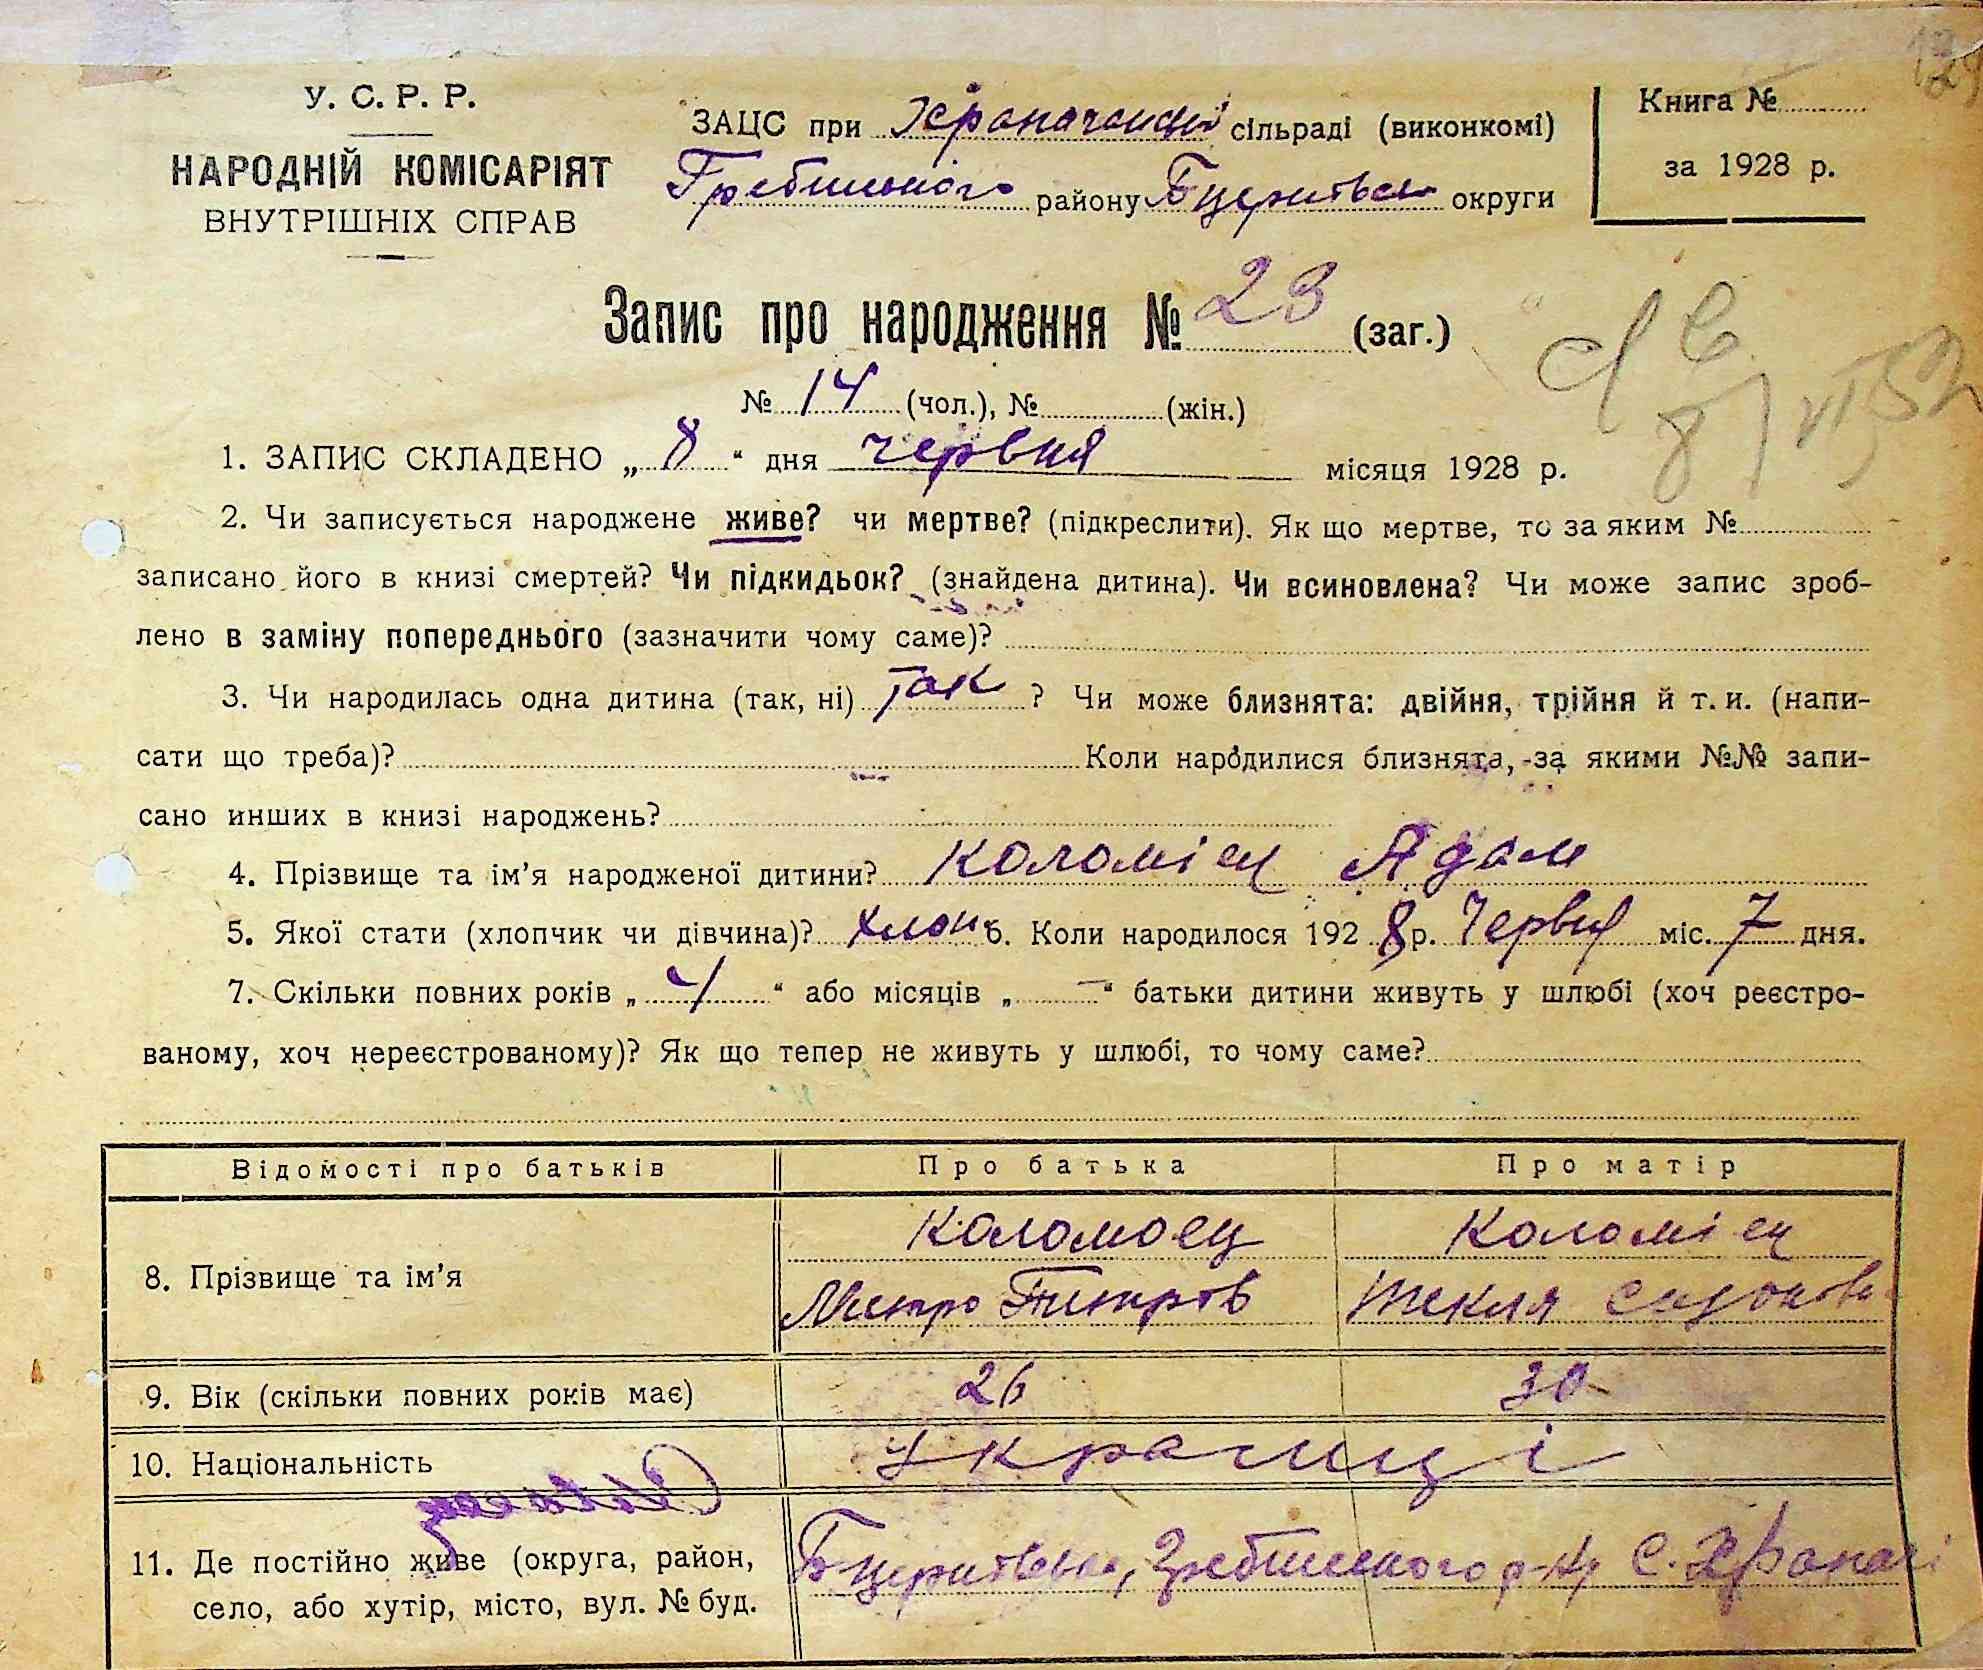 У. С. Р. Р.
НАРОДНІЙ КОМІСАРІЯТ
ВНУТРІШНІХ СПРАВ
ЗАЦС при Храпачанські сільраді (виконкомі)
Гребінського району Бцерківська округи
Книга №
за 1928 р.
Запис про народження № 23 (заг.)
№ 14 (чол.), № (жін.)
1. ЗАПИС СКЛАДЕНО „ 8 “ дня червня місяця 1928 р.
2. Чи записується народжене живе? чи мертве? (підкреслити). Як що мертве, то за яким №
записано його в книзі смертей? Чи підкидьок? (знайдена дитина). Чи всиновлена? Чи може запис зроб-
лено в заміну попереднього (зазначити чому саме)?
3. Чи народилась одна дитина (так, ні) так ? Чи може близнята: двійня, трійня й т. и. (напи-
сати що треба)? Коли народилися близнята, за якими №№ запи-
сано инших в книзі народжень?
4. Прізвище та ім’я народженої дитини? Коломієц Адам
5. Якої стати (хлопчик чи дівчина)? хлоп 6. Коли народилося 192 8 р. Червня міс. 7 дня.
7. Скільки повних років „ 4 “ або місяців „ – “ батьки дитини живуть у шлюбі (хоч реєстро-
ваному, хоч нереєстрованому)? Як що тепер не живуть у шлюбі, то чому саме?
Відомості про батьків Про батька Про матір
8. Прізвище та ім’я Коломоец Коломієц
Митро Питров Текля
9. Вік (скільки повних років має) 26 30
10. Національність Українці
11. Де постійно живе (округа, район,
село, або хутір, місто, вул. № буд.
Бцерківська, Гребінського р-ну с. Храпачі